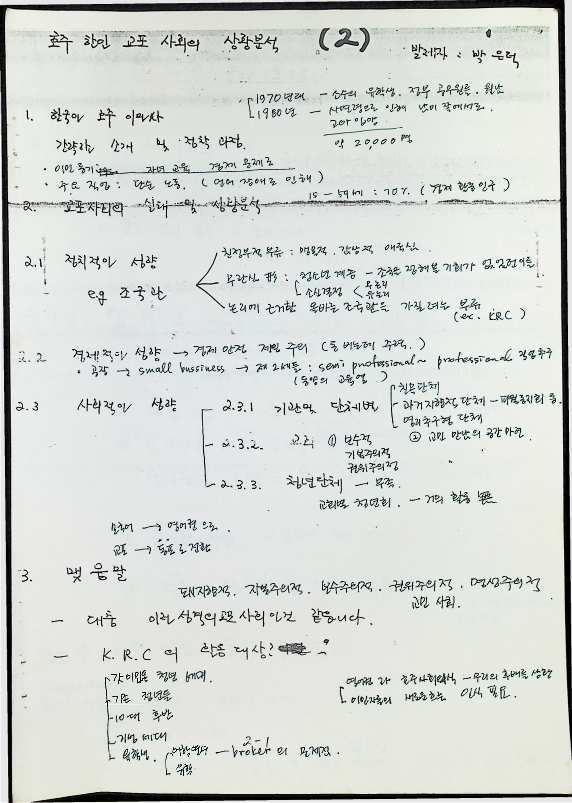 호주 한인 교포 사회의 상황분석 (2)
발제자 : 박은덕
1. 한국인 호주 이민사
1970년대 - 소수의 유학생, 정부 공무원들, 월남
1980년 - 사면령으로 인해 난민
고아 입양
약 20000명
간략한 소개 및 정착 과정.
· 이민 동기 자녀 교육 경제 문제로
· 주요 직업 : 단순 노동. (언어 장애로 인해)
15 - 59세 : 70% (경제 활동 인구)
2. 교포사회의 실태 및 상황분석
2.1 정치적인 성향
eg 조국관
친정부적 부류 : 맹목적, 감상적 애국심.
무관심 부류 : 청소년 계층 - 조국을 접해볼 기회가 없었던이들
소신결정
논리에 근거한 올바른 조국관을 가질려는 부류
(ex. KRC)
2.2 경제적인 성향 → 경제 안정 제일 주의 (돈 버는데 주력.)
· 공장 → small bussiness → 제 2세들 : semi professional ~ professional 직업 추구
(동양의 교육열)
2.3 사회적인 성향
2.3.1 기관및 단체별
친목단체
과거지향적 단체 - 월남동지회 등.
명리추구형 단체
2.3.2. 교회 ① 보수적
기복주의적
권위주의적
② 교민 만남의 공간 마련.
2.3.3. 청년단체 - 부족.
교회별 청년회. - 거의 활동 無
모국어 → 영어권으로.
교포 → 동포로 전환
3. 맺음말
폐쇄지향적. 개인주의적. 보수주의적. 권위주의적. 명성주의적
교민 사회.
- 대충 이런 성격의 교포 사회인것 같습니다.
- K.R.C 의 활동 대상?
같이 일할 청년 세대.
기존 청년들
10대 후반
기성 세대
유학생.
어학연수
유학
2-1
broker 의 문제점.
영어권과 호주사회의식 - 우리의 후배를 상향
이민자들의 새로운흐름 인식 필요.